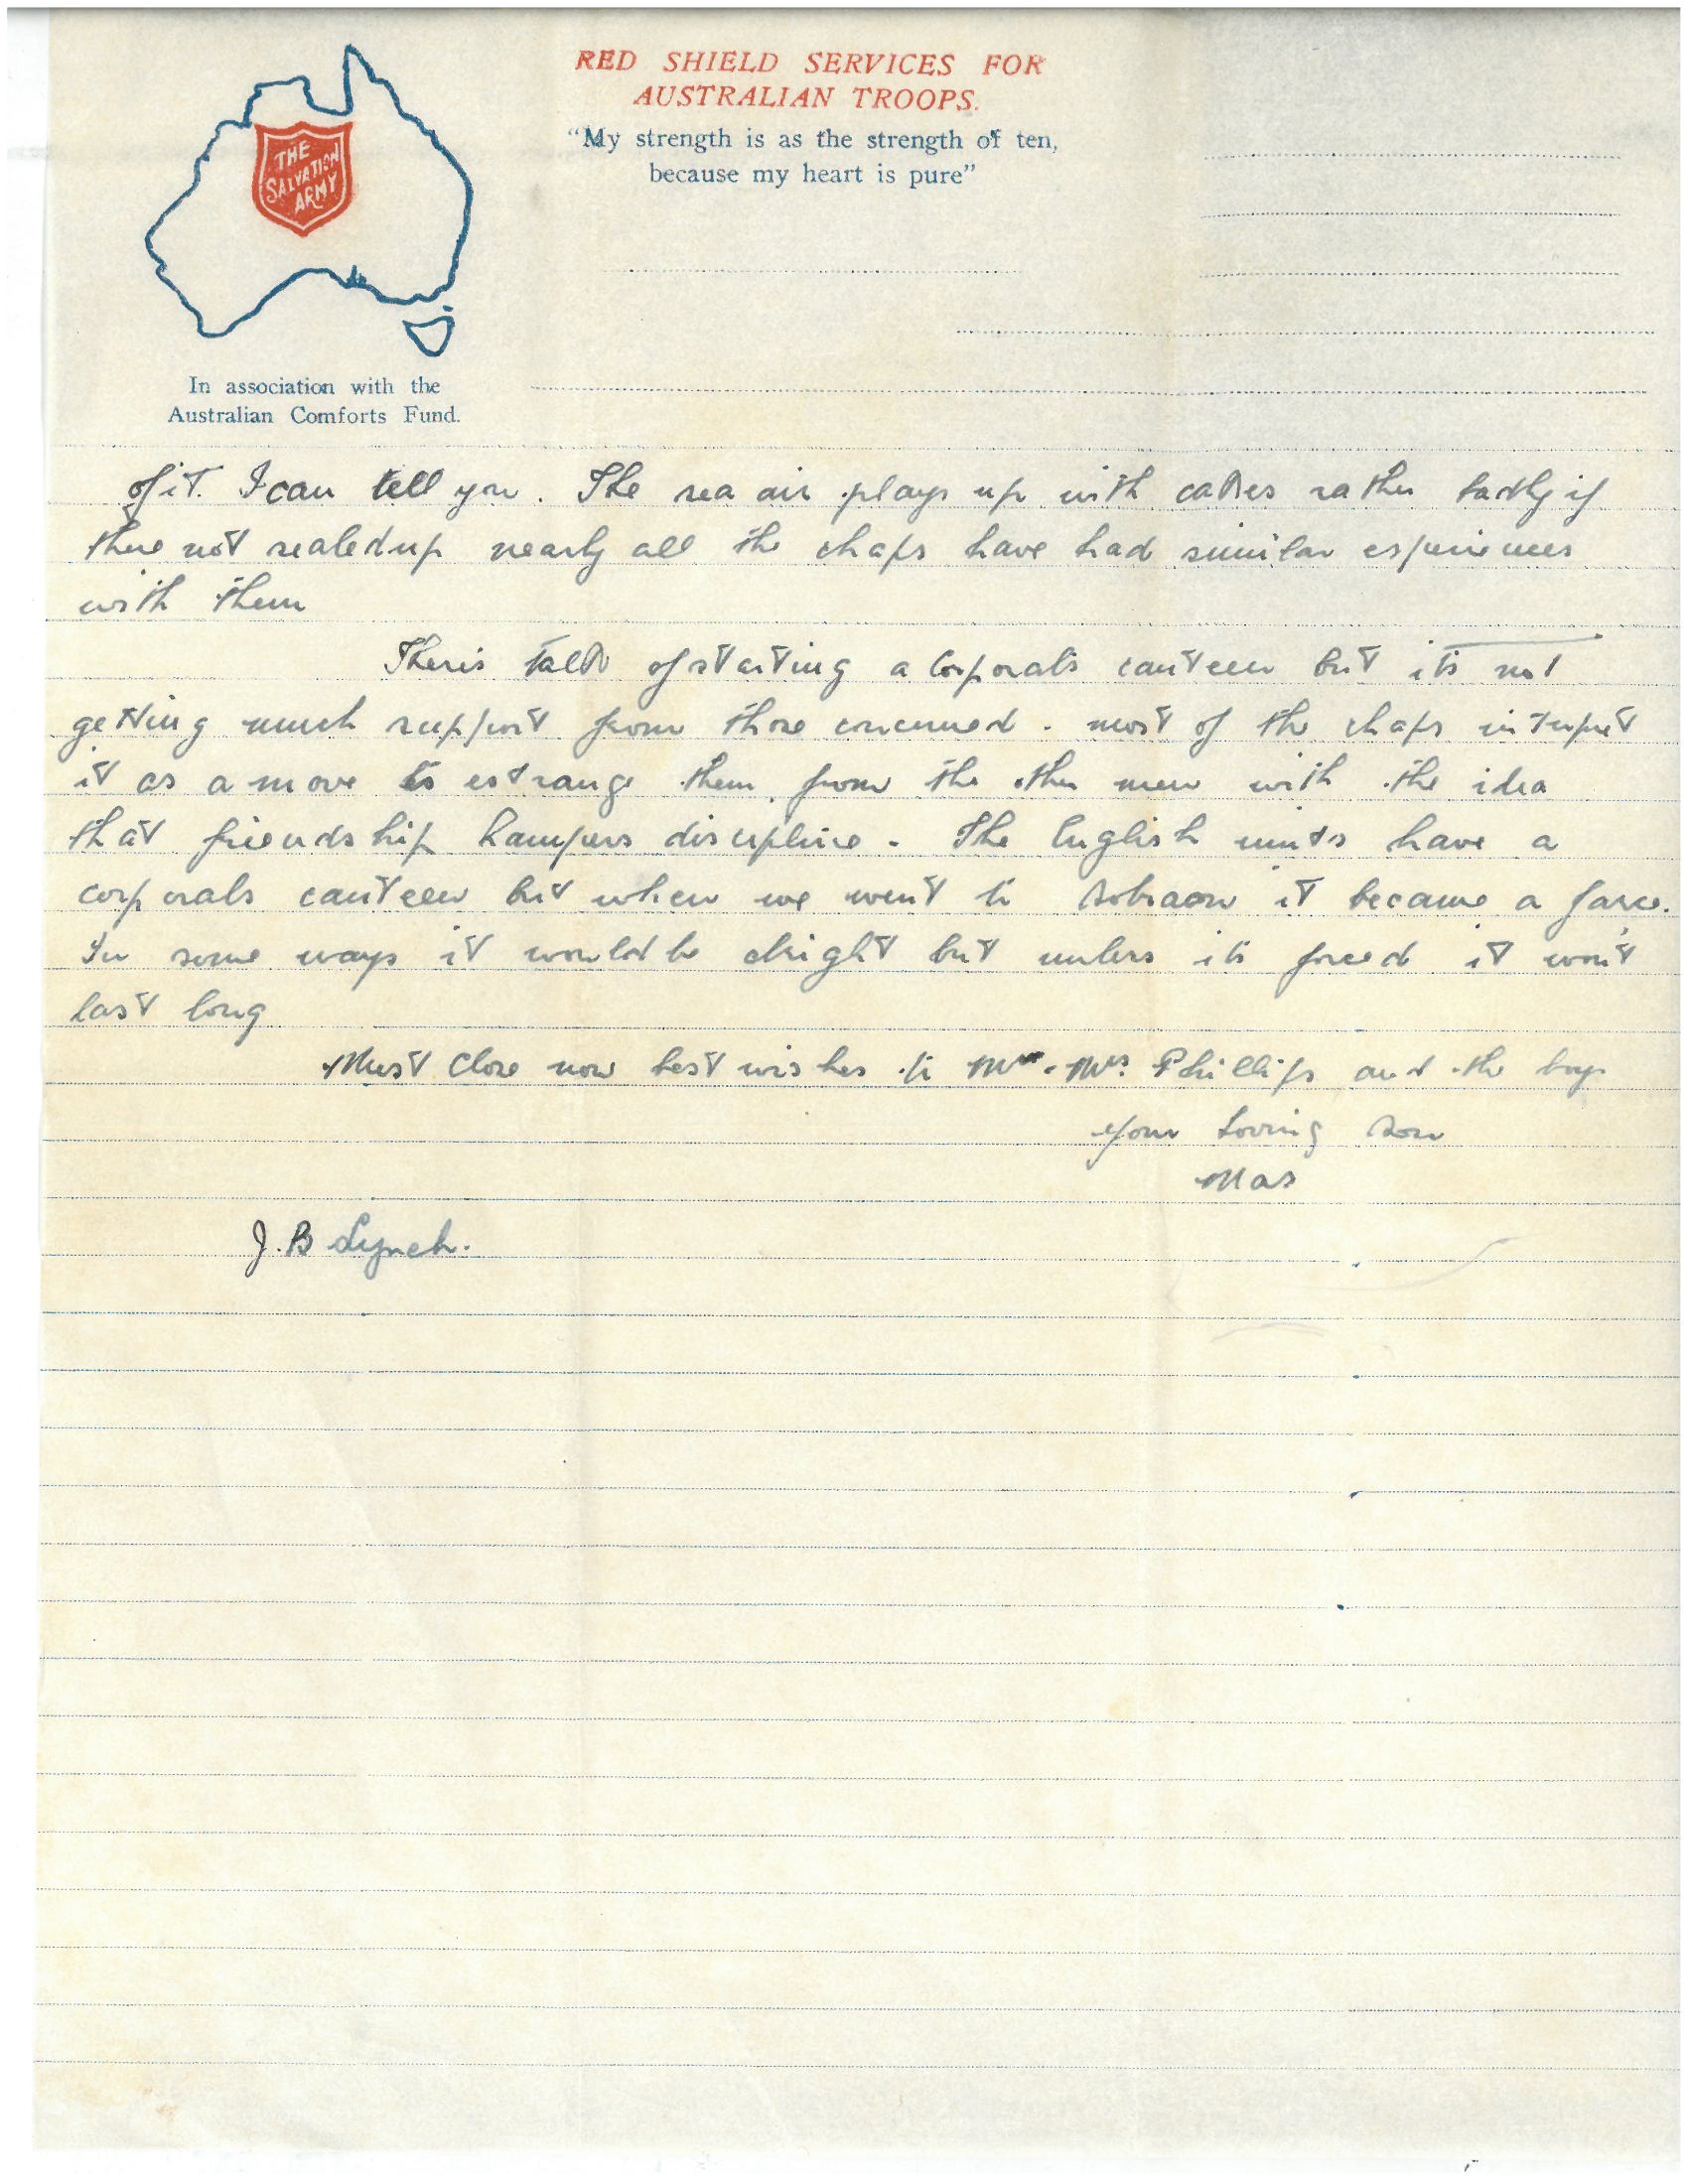 RED SHIELD SERVICES FOR
AUSTRALIAN TROOPS.
"My strength is as the strength of ten,
because my heart is pure"
THE
SALVATION
ARMY
In association with the
Australian Comforts Fund.
of it. I can tell you. The sea air plays up with cakes rather badly if
there not sealed up nearly all the chaps have had similar experiences
with them
Theris talk of starting a Corporals canteen but its not
getting much support from those concerned. most of the chaps intrepret
it as a move to estrange them from the other men with the idea
that friendship hampers discipline. The English units have a
corporals canteen but when we went to Sobraon it became a farce.
In some ways it would be alright but unless its forced it won't
last long
Must close now best wishes to Mr. Mrs. Phillips and the boys
your loving son
Mas
J. B Lynch.